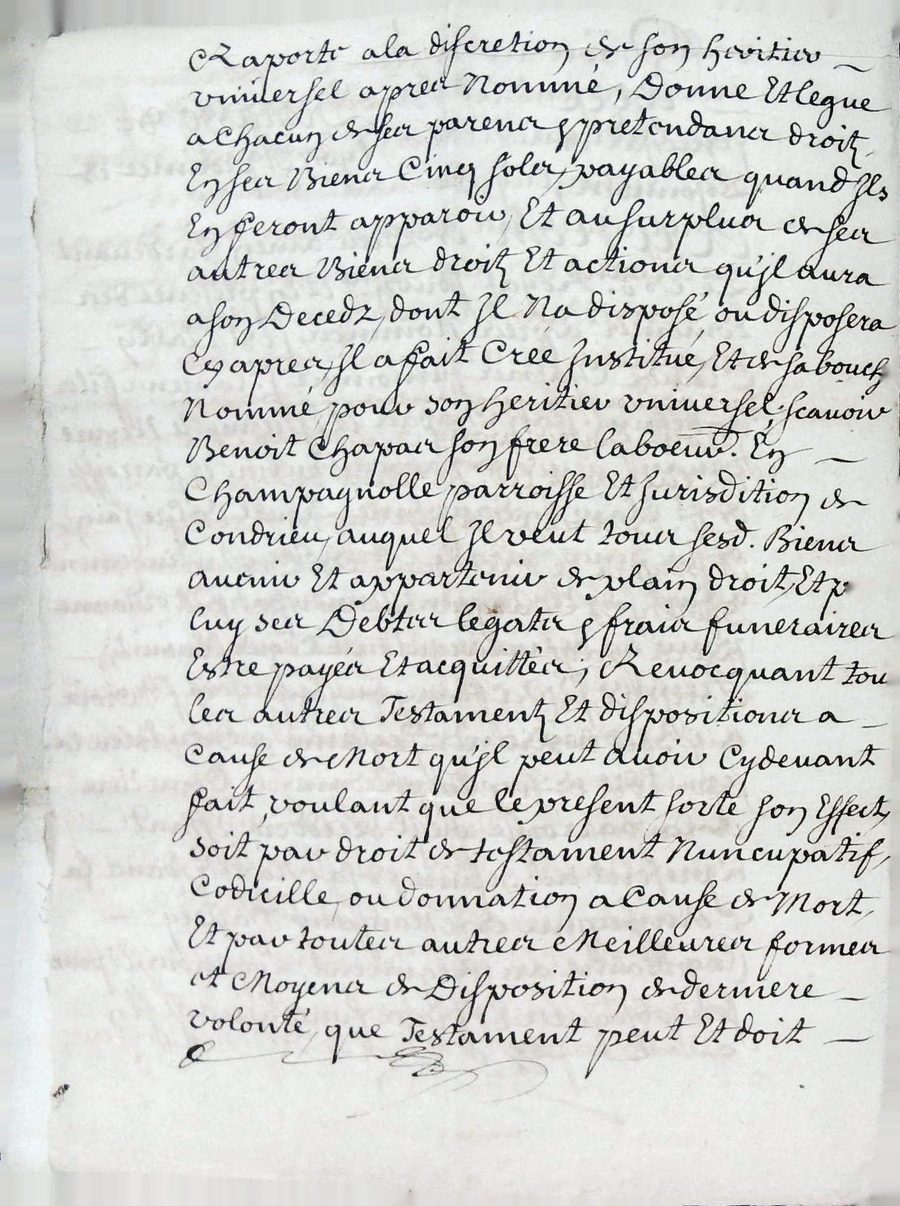 Raporte a la discretion de son heritier
vniuersel apres Nommé, Donne Et legue
a Chacun de ses parens & pretendans droitz
En ses Biens Cinq solz, payables quand Jls
En feront apparoir, Et au surplus de ses
autres Biens droitz Et actions qu'jl aura
a son Decedz, dont Jl Na disposé, ou disposera
Cy apres, Jl a fait Créé Jnstitué, Et de sa bouche
Nommé, pour son heritier vniuersel, scauoir
Benoit Chapas son frere laboeur. En
Champagnolle parroisse Et Jurisdition de
Condrieu, auquel Jl veut tous sesd. Biens
auenir Et appartenir de plain droit, Et p
luy ses Debtes legats & frais funeraires
Estre payés Et acquittés; Reuocquant tou
les autres Testamentz Et dispositions a
Cause de Mort qu'jl peut auoir Cydeuant
fait, voulant que le present sorte son Effect,
soit par droit de testament Nuncupatif,
Codicille, ou donnation a Cause de Mort,
Et par toutes autres Meilleures formes
et Moyens de Disposition de derniere
volonté, que Testament peut Et doit